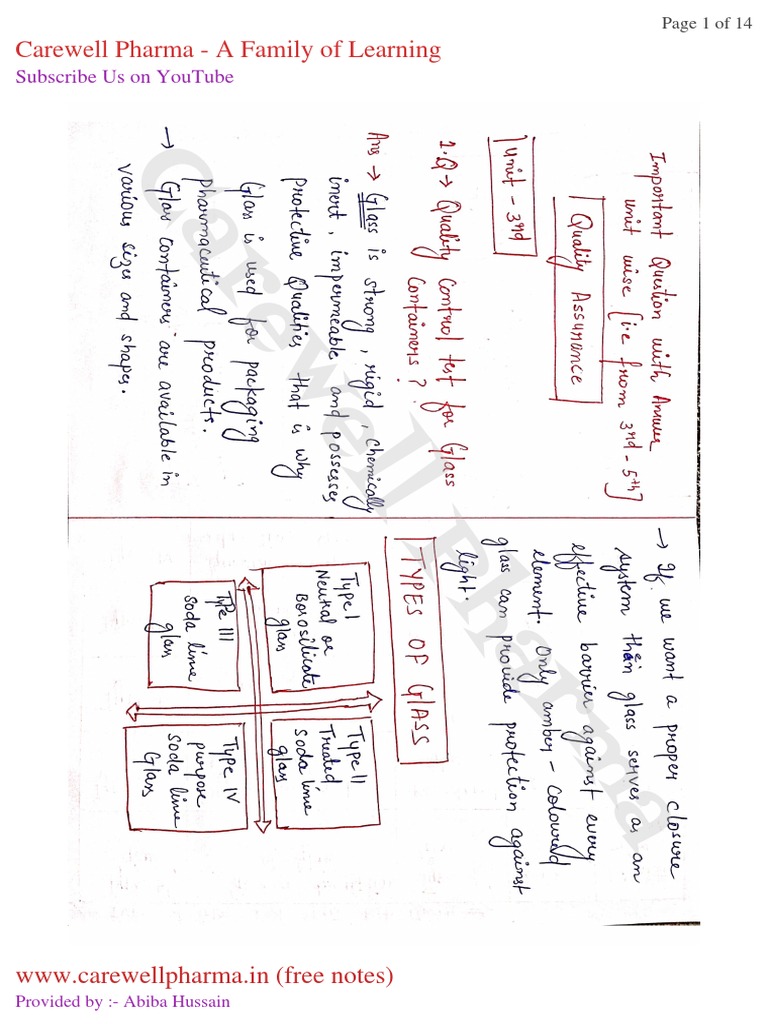 Page 1 of 14
Carewell Pharma - A Family of Learning
Subscribe Us on YouTube
Important Question with Answer
unit wise [i.e from 3rd - 5th]
Quality Assurance
Unit - 3rd
1.Q → Quality Control test for Glass
Containers ?
Ans → Glass is strong, rigid, chemically
inert, impermeable and possesses
protective Qualities that is why
Glass is used for packaging
pharmaceutical products.
→ Glass containers are available in
various sizes and shapes.
→ If we want a proper closure
system then glass serves as an
effective barrier against every
element. Only amber - coloured
glass can provide protection against
light.
TYPES OF GLASS
Type I
Neutral or
Borosilicate
glass
Type II
Treated
Soda lime
glass
Type III
soda lime
glass
Type IV
purpose
soda lime
Glass
Carewell Pharma
www.carewellpharma.in (free notes)
Provided by :- Abiba Hussain